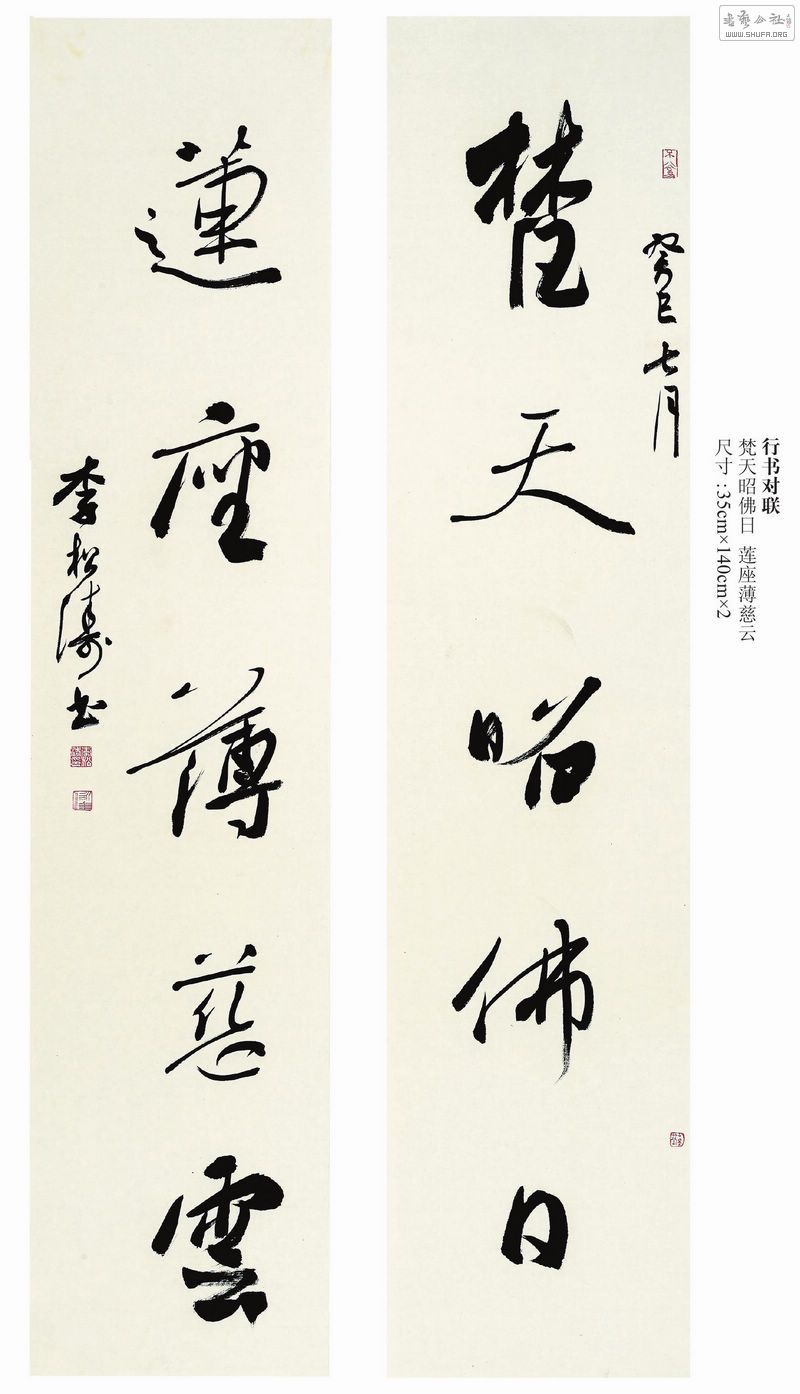 癸巳七月
梵天昭佛日
蓮座薄慈雲
李松涛书
行书对联
梵天昭佛日 莲座薄慈云
尺寸:35cm×140cm×2
书艺公社
WWW.SHUFA.ORG